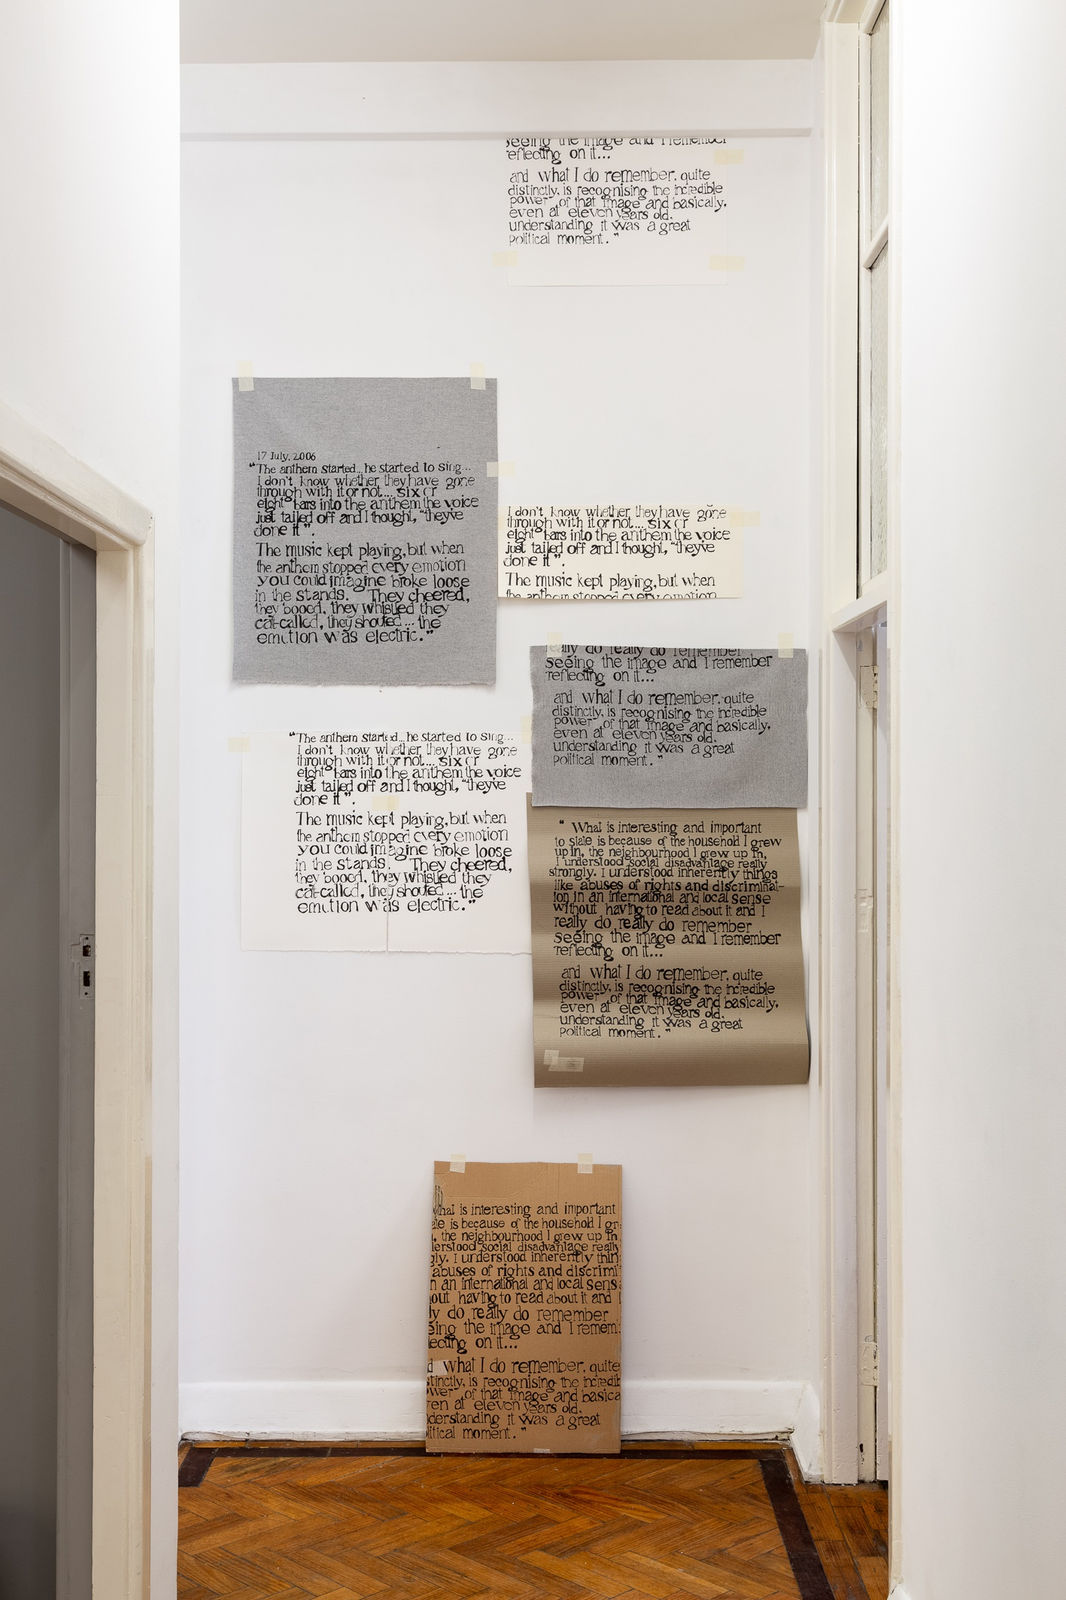 seeing the image and I remember
reflecting on it...
and what I do remember, quite
distinctly, is recognising the incredible
power of that image and basically,
even at eleven years old,
understanding it was a great
political moment."
17 July, 2006
"The anthem started... he started to sing...
I don't know whether they have gone
through with it or not.... six or
eight bars into the anthem the voice
just tailed off and I thought, "they've
done it".
The music kept playing, but when
the anthem stopped every emotion
you could imagine broke loose
in the stands. They cheered,
they booed, they whistled they
cat-called, they shouted... the
emotion was electric."
I don't know whether they have gone
through with it or not.... six or
eight bars into the anthem the voice
just tailed off and I thought, "they've
done it".
The music kept playing, but when
the anthem stopped every emotion
really do really do remember
seeing the image and I remember
reflecting on it...
and what I do remember, quite
distinctly, is recognising the incredible
power of that image and basically,
even at eleven years old,
understanding it was a great
political moment."
"The anthem started... he started to sing...
I don't know whether they have gone
through with it or not.... six or
eight bars into the anthem the voice
just tailed off and I thought, "they've
done it".
The music kept playing, but when
the anthem stopped every emotion
you could imagine broke loose
in the stands. They cheered,
they booed, they whistled they
cat-called, they shouted... the
emotion was electric."
" What is interesting and important
to state is because of the household I grew
up in, the neighbourhood I grew up in,
I understood social disadvantage really
strongly. I understood inherently things
like abuses of rights and discriminat-
ion in an international and local sense
without having to read about it and I
really do really do remember
seeing the image and I remember
reflecting on it...
and what I do remember, quite
distinctly, is recognising the incredible
power of that image and basically,
even at eleven years old,
understanding it was a great
political moment."
hat is interesting and important
ate is because of the household I gr
, the neighbourhood I grew up in
derstood social disadvantage really
gly. I understood inherently thin
abuses of rights and discrimi
n an international and local sens
out having to read about it and I
ly do really do remember
eing the image and I remem
lecting on it...
d what I do remember, quite
stinctly, is recognising the incredi
wer of that image and basica
ven at eleven years old,
derstanding it was a great
litical moment."